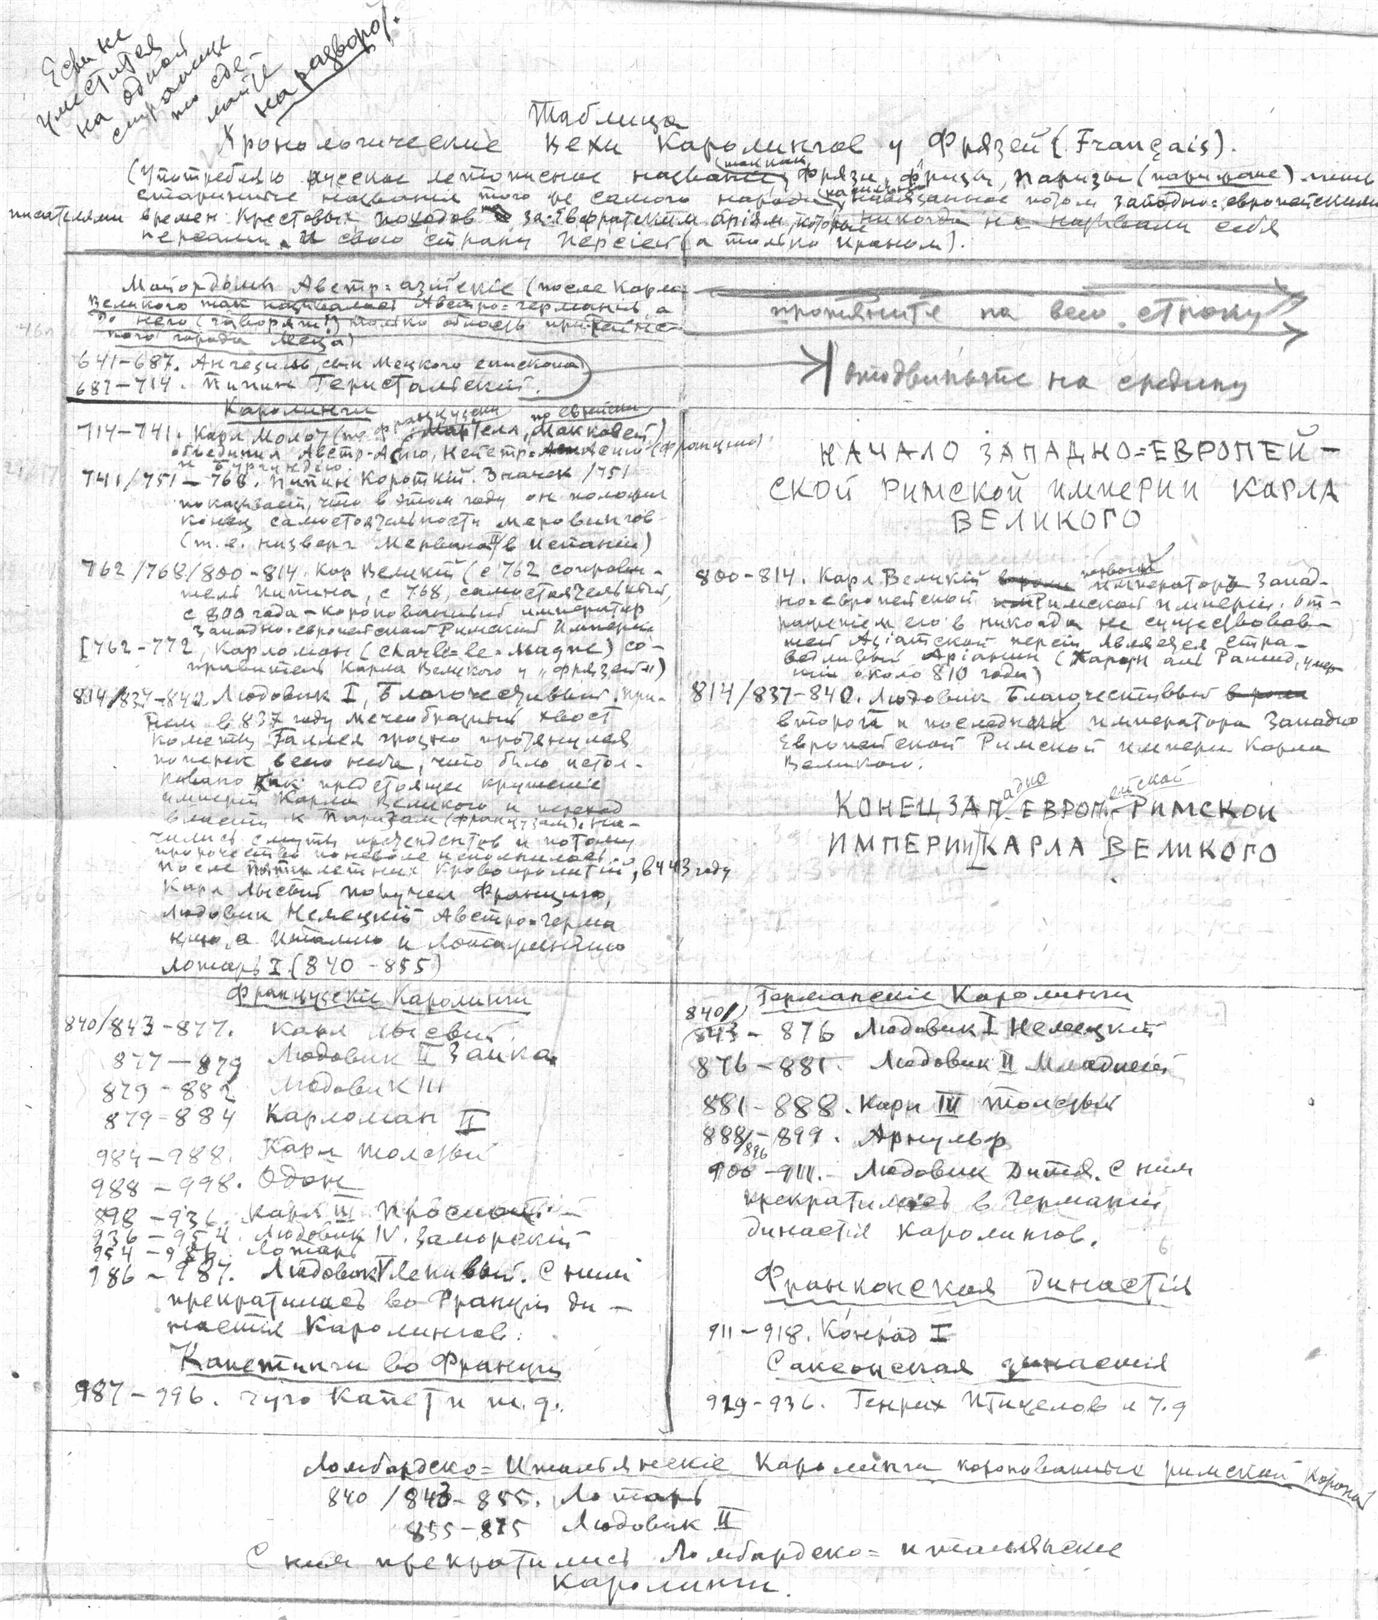 Если не
уместится
на одной
странице
то сде-
лайте
на разворот.
Таблица
Хронологические вехи Каролингов у Фрязей (Français).
(Употребляю русское летописное название, так как фрязи, фризы, Паризы (парижане) лишь
старинные названия того же самого народа, навязанное потом западно=европейскими
писателями времен Крестовых походов за-Евфратским арiям, которые никогда не называли себя
персами и свою страну Персiей (а только Ираном).
Майордомы Австр=азiтскiе (после Карла
Великого так называлась Австро=Германiя, а
до него (говорят!) только область прирейнс-
кого города Меца)
протяните на всю строку
641–687. Ангезиль, сын Мецкого епископа
687–714. Пипин Геристальскiй.
отодвиньте на средину
Каролинги
714–741. Карл Молот (по французски Мартелл, по еврейски Маккавей)
объединил Австр-Азiю, Нейстр-Азiю (францию)
и Бургундию.
741/751–768. Пипин Короткiй. Значек /751
показывает, что в этом году он положил
конец самостоятельности Меровингов
(т.е. низверг Мервана II в Испании)
762/768/800–814. Кар Великiй (с 762 соправи-
тель Пипина, с 768 самостоятельный,
с 800 года – коронованный император
Западно-европейской Римской Империи
[762–772, Карломан (Charle-le-Magne) со-
правитель Карла Великого у "фрязей")
814/837–840. Людовик I, Благочестивый. При-
чем в 837 году мечеобразный хвост
кометы Галлея грозно протянулся
поперек всего неба, что было истол-
ковано как предстоящее крушенiе
империи Карла Великого и переход
власти к Паризам (французам). На-
чились смуты претендентов и потому
пророчество поневоле исполнилось.
После пятилетних кровопролитiй, в 443 году
Карл Лысый получил Францию,
Людовик Немецкiй Австро=Герма
нию, а Италию и Лотарингию
Лотарь I (840–855)
НАЧАЛО ЗАПАДНО=ЕВРОПЕЙ–
СКОЙ РИМСКОЙ ИМПЕРИИ КАРЛА
ВЕЛИКОГО
800–814. Карл Великiй первый император Запад-
но-европейской Римской империи. От-
ражением его в никогда не существовав-
шей Азiатской персiи является Спра-
ведливый Арiанин (Гарон ал Рашид, умер-
шiй около 810 года)
814/837–840. Людовик Благочестивый
второй и последнiй император Западно
Европейской Римской империи Карла
Великого.
КОНЕЦ ЗАПАДНО ЕВРОПЕЙСКОЙ РИМСКОЙ
ИМПЕРИИ КАРЛА ВЕЛИКОГО
Французскiе Каролинги
840/843–877. Карл Лысый
877–879 Людовик II Заика
879–882 Людовик III
879–884 Карломан II
984–988. Карл Толстый
988–998. Одон
898–936. Карл III Простой
936–954. Людовик IV. Заморскiй
954–986. Лотарь
986–987. Людовик V Ленивый. С ним
прекратилась во Франции ди–
настiя Каролингов.
Капетинги во Францiи
987–996. Гуго Капет и т.д.
Германскiе Каролинги
840/
843–876 Людовик I Немецкiй
876–881. Людовик II Младшiй
881–888. Карл III Толстый
888/896–899. Арнульф
900–911. Людовик Дитя. С ним
прекратилась в Германiи
династiя Каролингов.
Франконская династiя
911–918. Конрад I
Саксонская династiя
919–936. Генрих Птицелов и т.д
Ломбардско=Итальянскiе Каролинги коронованные римской короной
840/843–855. Лотарь
855–875 Людовик II
С ним прекратились Ломбардско=итальянские
Каролинги.